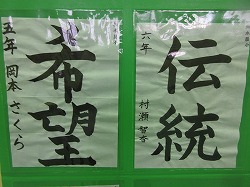 伝統
六年 村瀬 智香
希望
五年 岡本 さくら